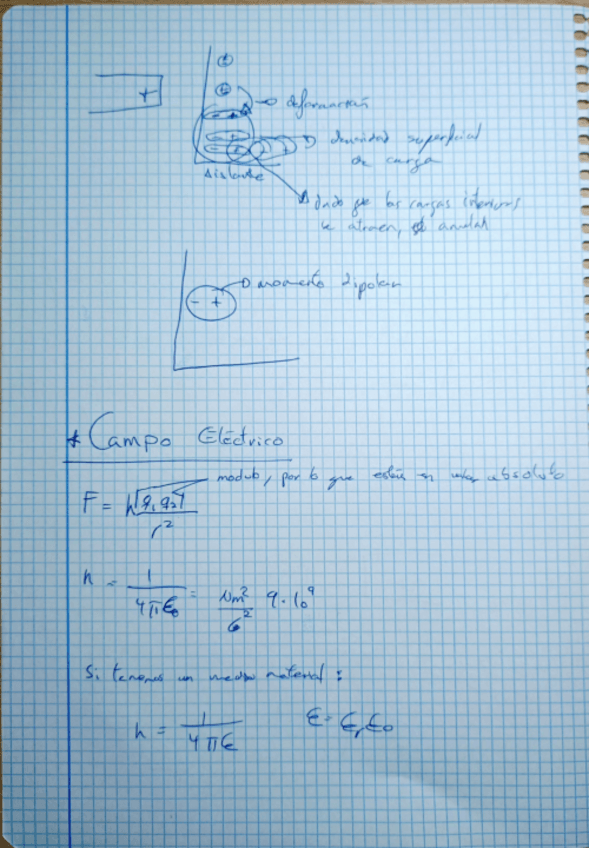 deformación
densidad superficial
de carga
Aislante
dado que las cargas interiores
se atraen, se anulan
momento dipolar
* Campo Eléctrico
módulo, por lo que están en valor absoluto
F = k|q₁q₂| / r²
k = 1 / 4πε₀ = Nm² / C² 9·10⁹
Si tenemos un medio material :
k = 1 / 4πε ε = εᵣε₀